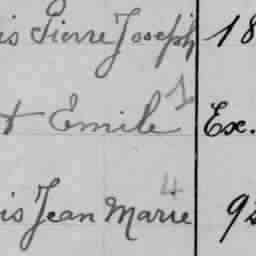 is Pierre Joseph 18
t Emile 1 Ex.
is Jean Marie 4 92